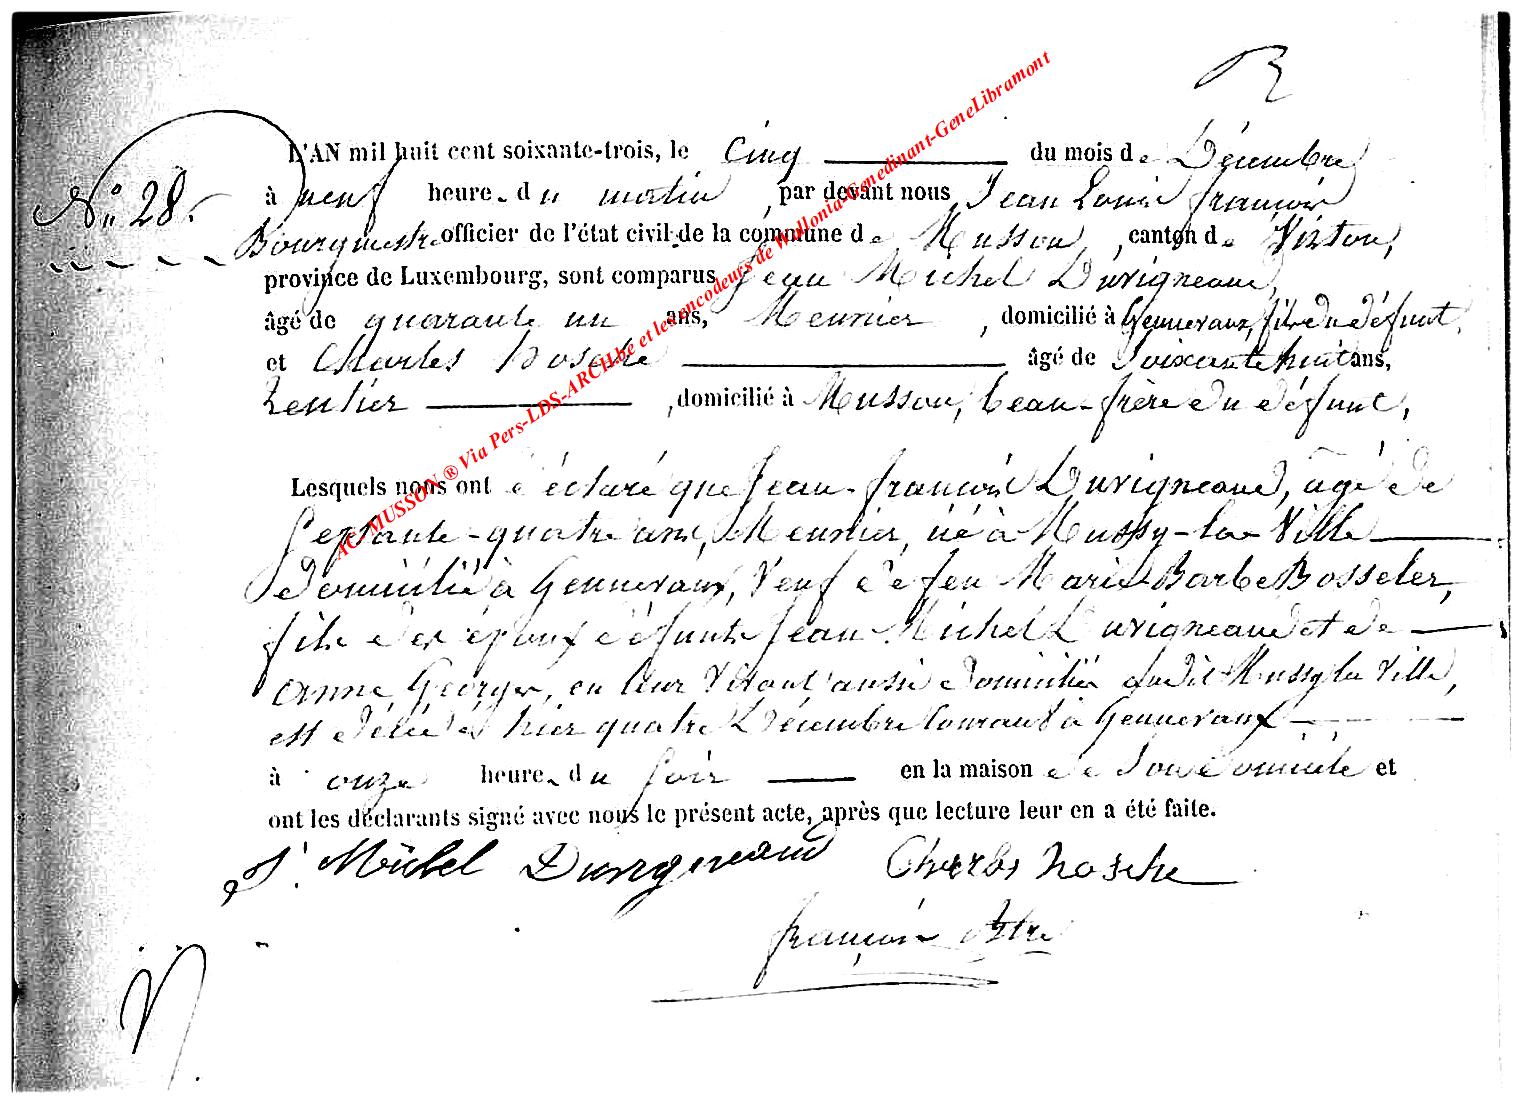 N° 28.
L'AN mil huit cent soixante-trois, le Cinq du mois de Décembre
à neuf heures du matin, par devant nous Jean Louis françois
Bourgmestre officier de l'état civil de la commune de Musson, canton de Virton,
province de Luxembourg, sont comparus Jean Michel Duvigneaud
âgé de quarante un ans, Meunier, domicilié à Gennevaux, fils du défunt,
et Charles Nosche âgé de Soixante huit ans,
Rentier, domicilié à Musson, beau-frère du défunt,
Lesquels nous ont déclaré que Jean-françois Duvigneaud, âgé de
Septante-quatre ans, Meunier, né à Mussy-la-Ville
domicilié à Gennevaux, Veuf de feu Marie Barbe Bosseler,
fils des époux défunts Jean Michel Duvigneaud et de
Anne Georges, en leur vivant aussi domiciliés audit Mussy la Ville,
est décédé hier quatre Décembre Courant à Gennevaux
à onze heures du soir en la maison de son domicile et
ont les déclarants signé avec nous le présent acte, après que lecture leur en a été faite.
J. Michel Duvigneaud Charles Nosche
françois Bstre
AC MUSSON ® Via Pers-LDS-ARCH.be et les encodeurs de Wallonia-Genedinant-GeneLibramont